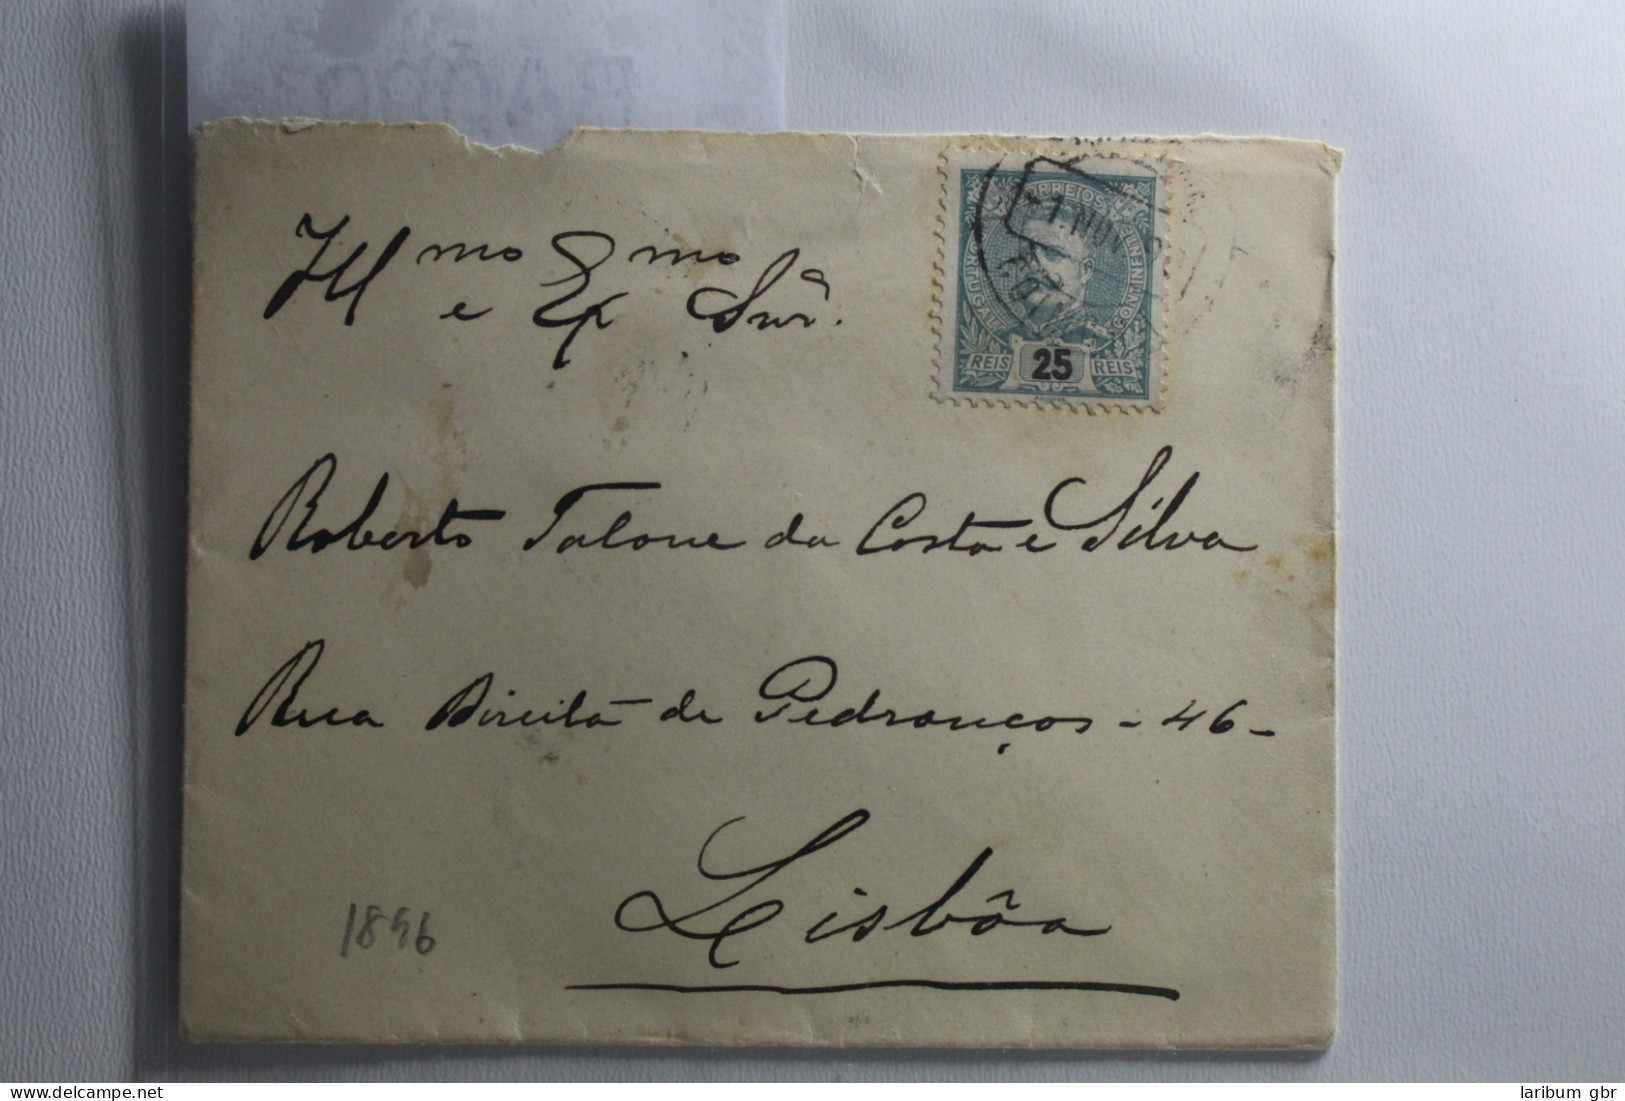 CORREIOS
PORTUGAL
CONTINENTE
REIS 25 REIS
Illmo e Exmo Snr.
Roberto Talone da Costa e Silva
Rua Direita de Pedrouços - 46 -
Lisbôa
1896
laribum gbr